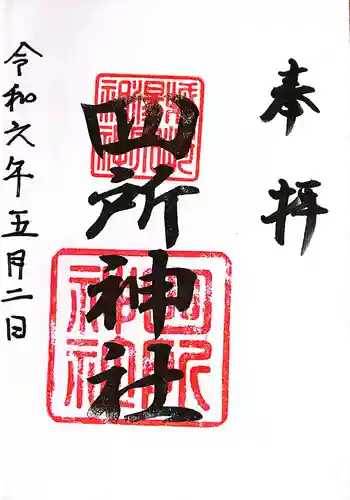 奉拝
四所神社
令和六年五月二日